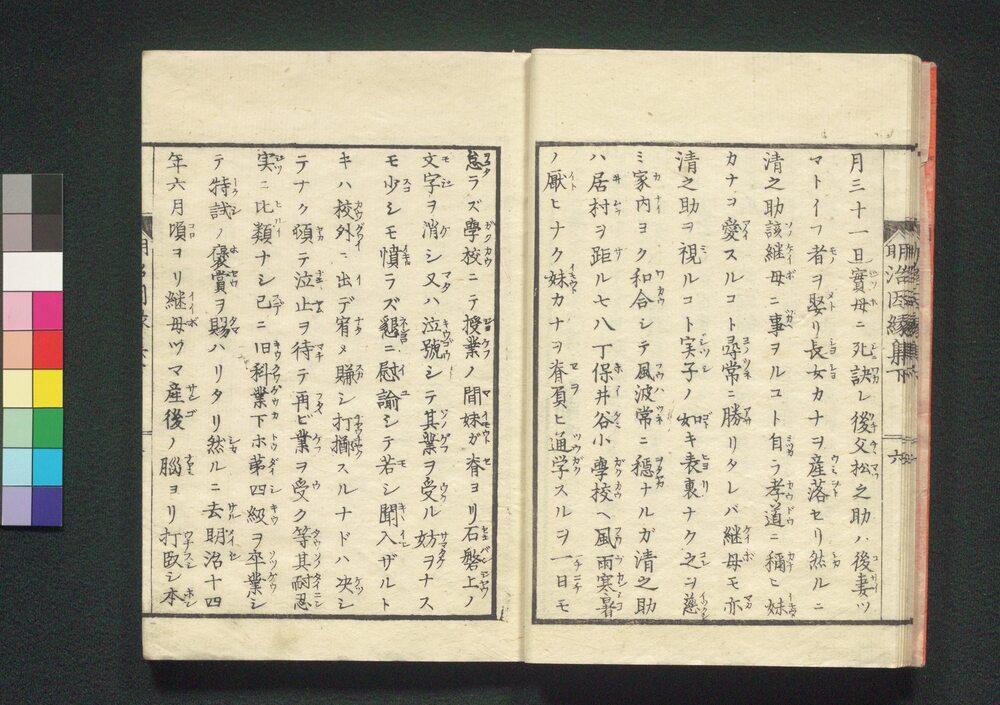 明治因縁集下
六
月三十一日實母ニ死訣レ後父松之助ハ後妻ツ
マトイフ者ヲ娶リ長女カナヲ産落セリ然ルニ
清之助該継母ニ事ヲルコト自ラ孝道ニ稱ヒ妹
カナヲ愛スルコト尋常ニ勝リタレバ継母モ亦
清之助ヲ視ルコト実子ノ如キ表裏ナク之ヲ慈
ミ家内ヨク和合シテ風波常ニ穏ナルガ清之助
ハ居村ヲ距ル七八丁保井谷小學校ヘ風雨寒暑
ノ厭ヒナク妹カナヲ脊負ヒ通学スルヲ一日モ
怠ラズ學校ニテ授業ノ間妹ガ脊ヨリ石盤上ノ
文字ヲ消シ又ハ泣號シテ其業ヲ受ル妨ヲナス
モ少シモ憤ラズ懇ニ慰諭シテ若シ聞入ザルト
キハ校外ニ出デ宥メ賺シ打擲スルナドハ决シ
テナク頓テ泣止ヲ待テ再ビ業ヲ受ク等其耐忍
実ニ比類ナシ已ニ旧科業下ホ第四級ヲ卒業シ
テ特試ノ褒賞ヲ賜ハリタリ然ルニ去明治十四
年六月頃ヨリ継母ツマ産後ノ腦ヨリ打臥シ本